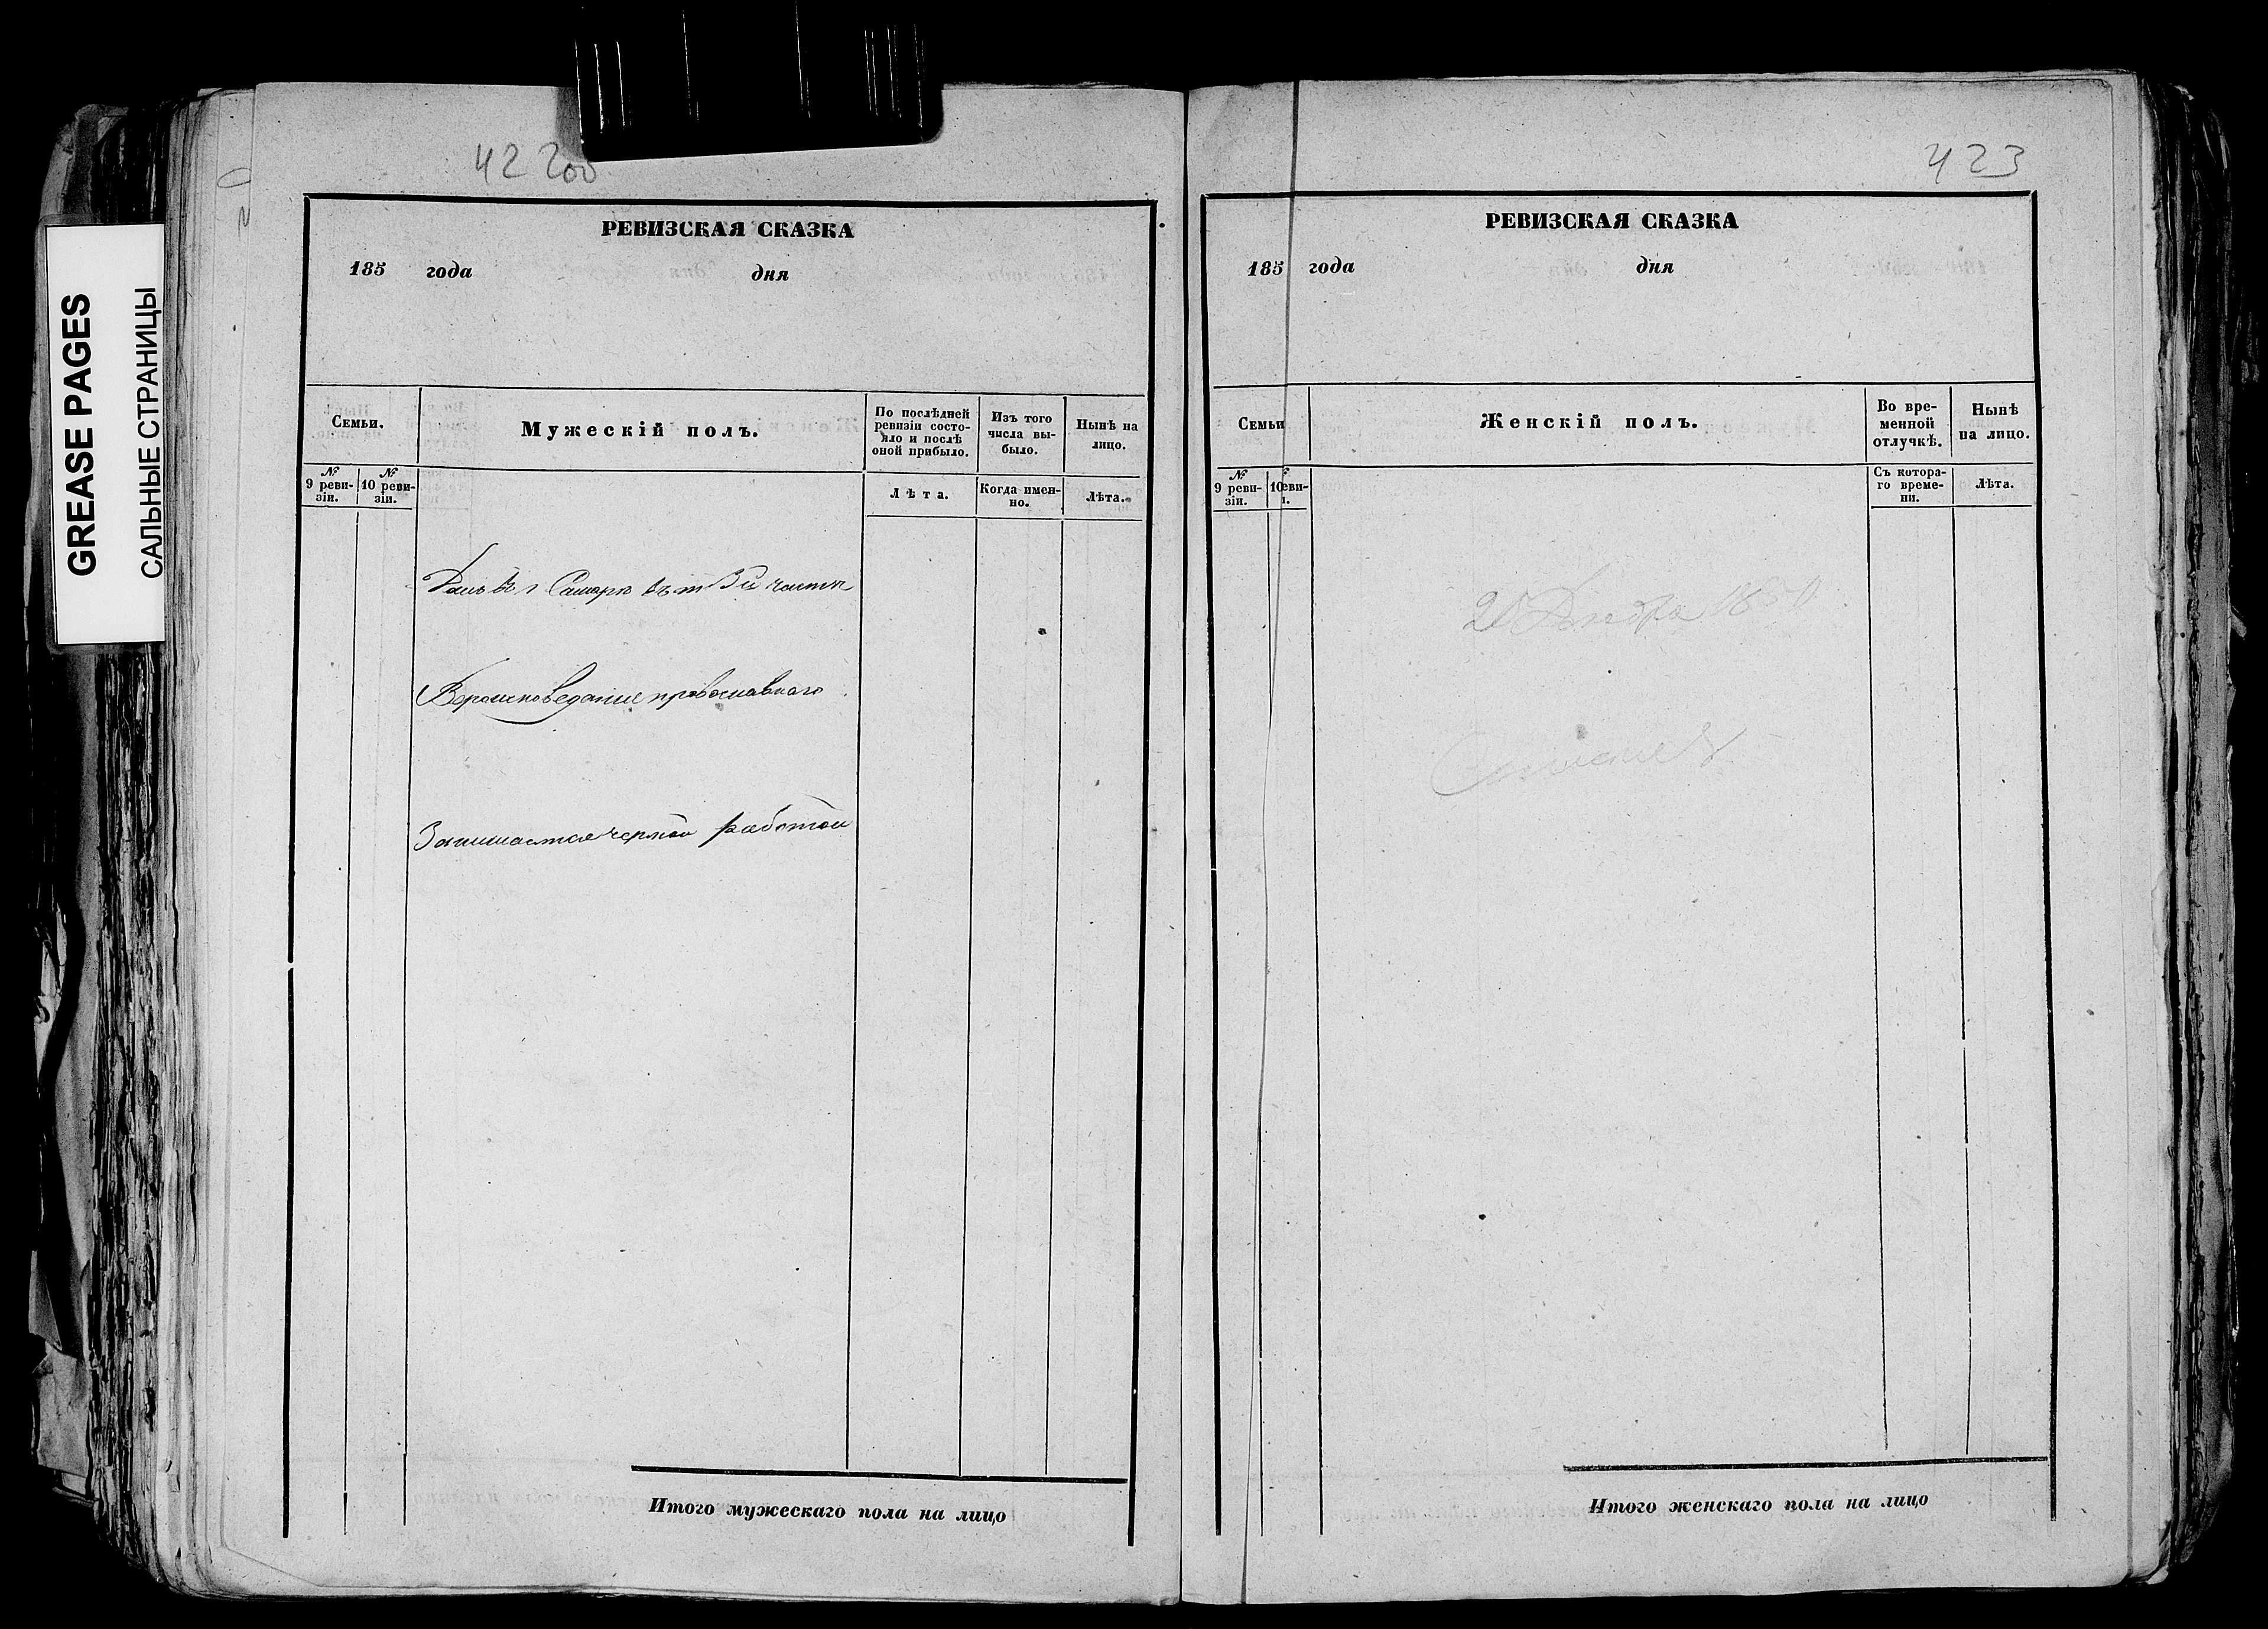 GREASE PAGES
САЛЬНЫЕ СТРАНИЦЫ
42 200
РЕВИЗСКАЯ СКАЗКА
185 года дня
Семьи.
Мужескій полъ.
По послѣдней ревизіи состо-
яло и послѣ
оной прибыло.
Изъ того
числа вы-
было.
Нынѣ на
лицо.
№
9 реви-
зіи.
№
10 реви-
зіи.
Лѣта.
Когда имен-
но.
Лѣта.
Домъ въ г Самарѣ въ 3й части
Вероисповедание православнаго
Занимается черной работой
Итого мужескаго пола на лицо
423
РЕВИЗСКАЯ СКАЗКА
185 года дня
Семьи
Женскій полъ.
Во вре-
менной
отлучкѣ.
Нынѣ
на лицо.
№
9 реви-
зіи.
10 еви-
і.
Съ котора-
го време-
ни.
Лѣта.
Итого женскаго пола на лицо